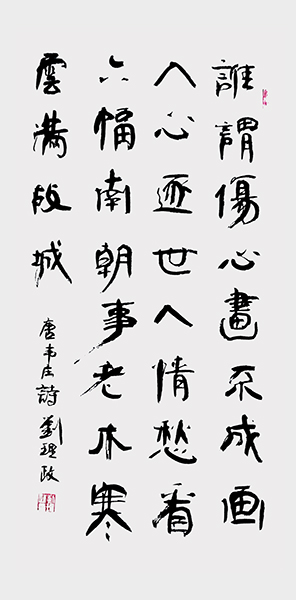 誰謂傷心畫不成画
人心逐世人情愁看
六幅南朝事老木寒
雲滿故城
唐韦庄詩劉理政